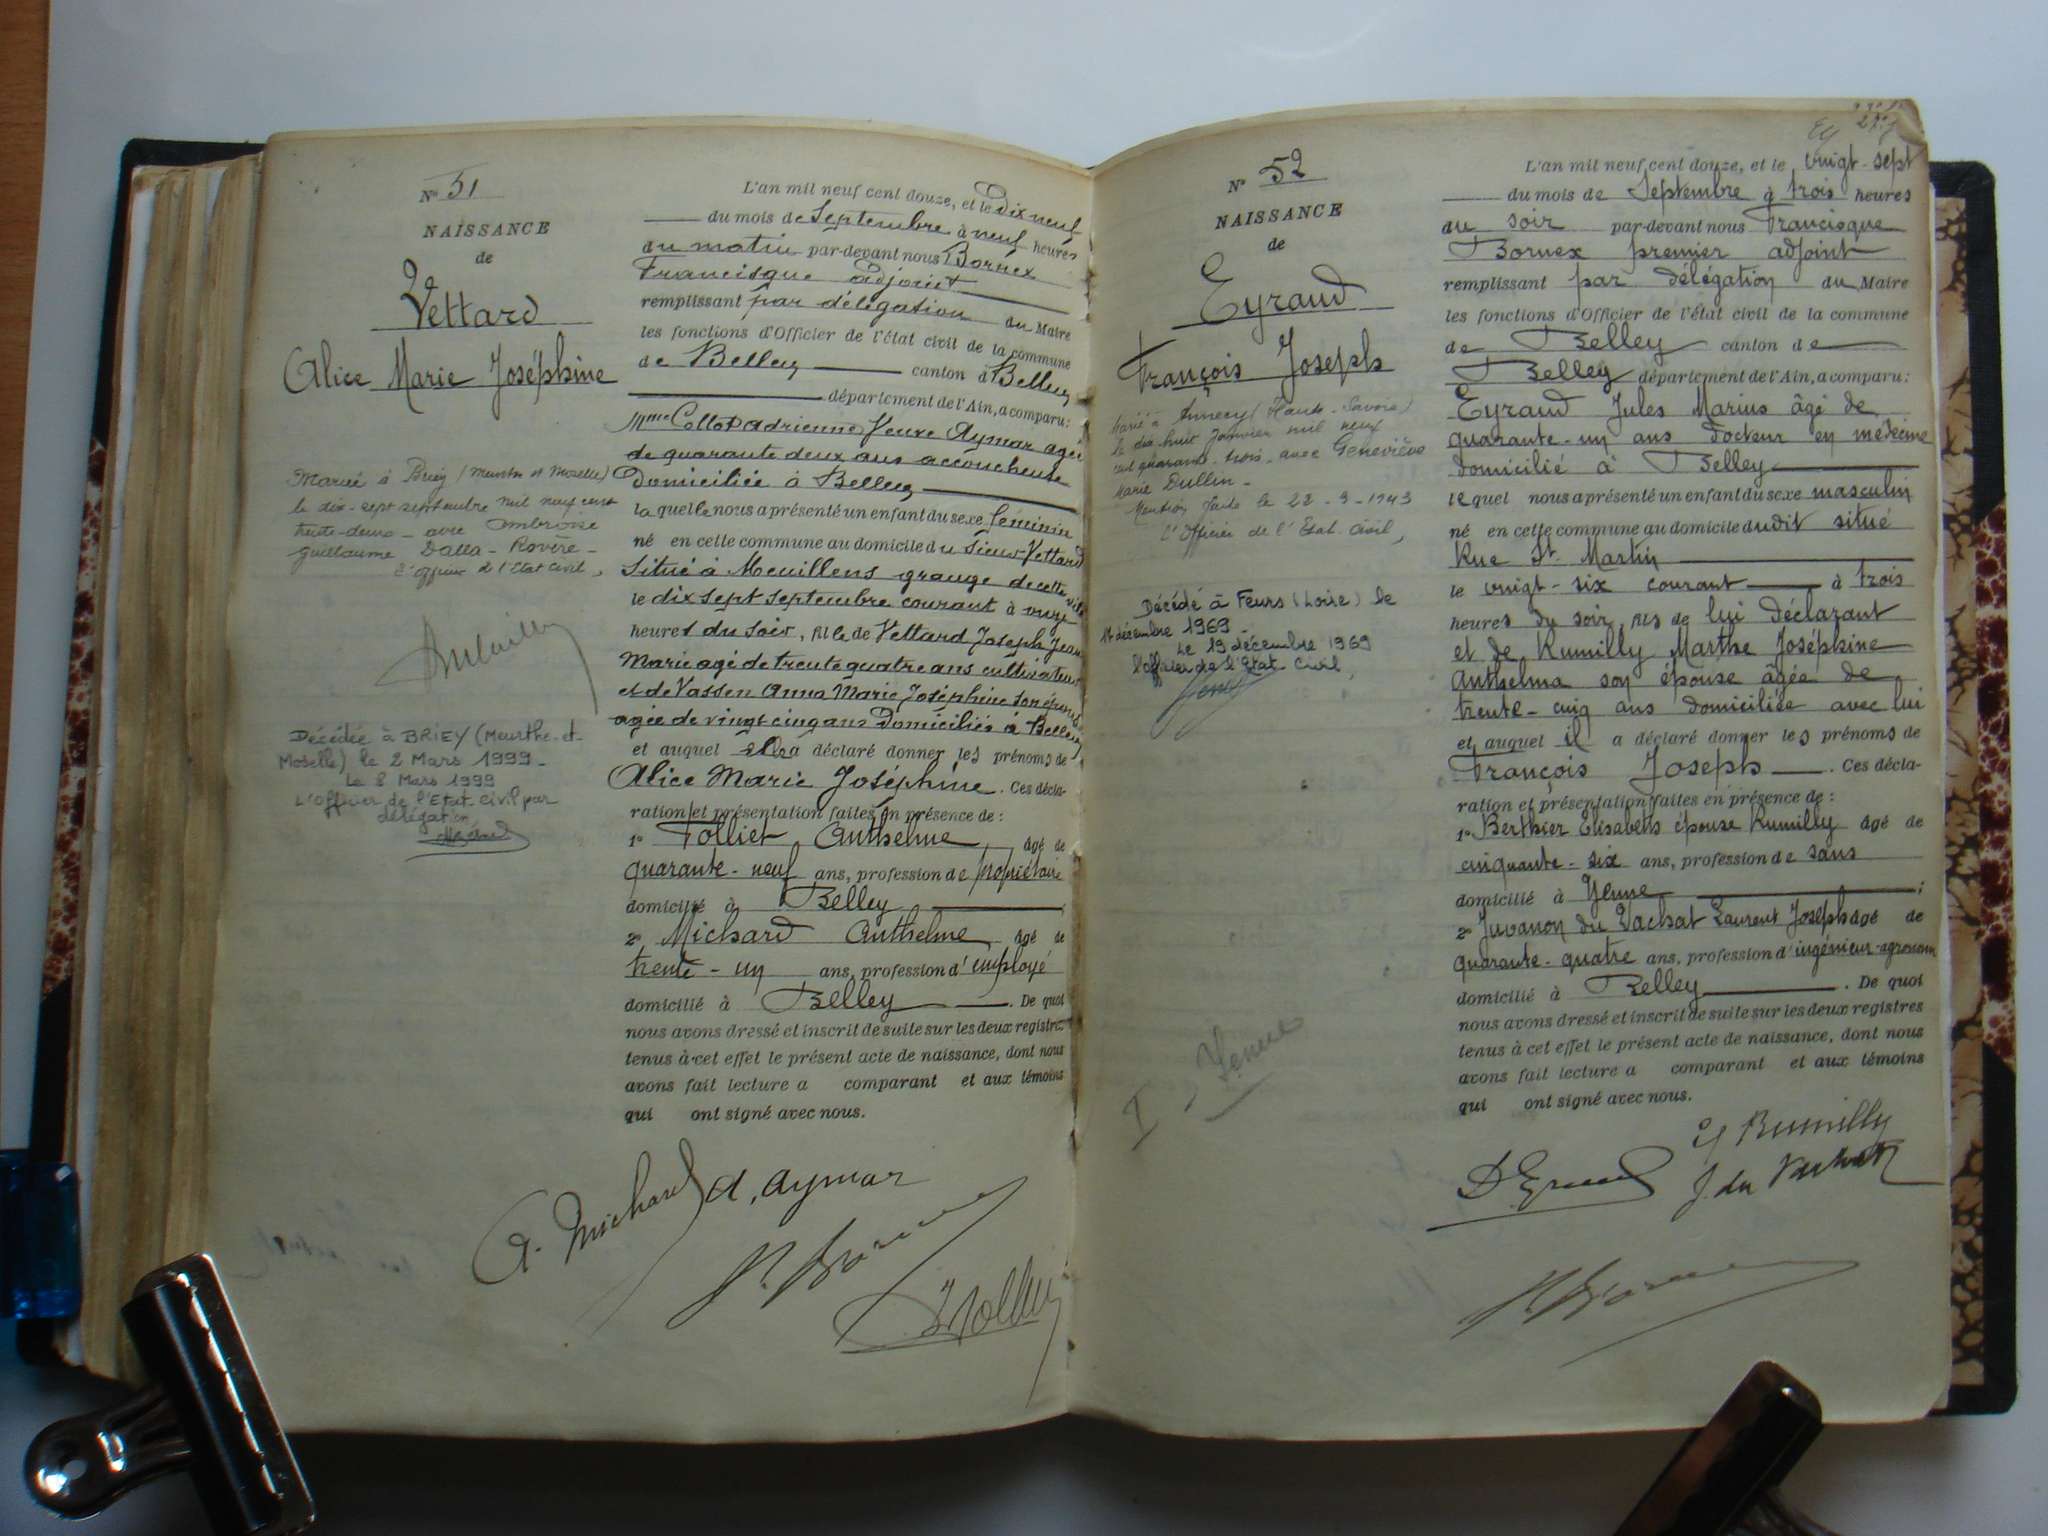 N° 51
NAISSANCE
de
Vettard
Alice Marie Joséphine
Mariée à Briey (Meurthe et Moselle)
le dix-sept septembre mil neuf cent
trente-deux - avec Ambroise
Guillaume Dalla-Rovère -
L'officier de l'Etat Civil,
Décédée à BRIEY (Meurthe-et-
Moselle) le 2 Mars 1999 -
Le 8 Mars 1999
L'Officier de l'Etat-Civil par
délégation
L'an mil neuf cent douze, et le Dix neuf
du mois de Septembre à neuf heures
du matin par-devant nous Bornex
Francisque adjoint
remplissant par délégation du Maire
les fonctions d'Officier de l'état civil de la commune
de Belley canton de Belley
département de l'Ain, a comparu:
Mme Collot Adrienne Veuve Aymar agée
de quarante deux ans accoucheuse
Domiciliée à Belley
laquelle nous a présenté un enfant du sexe féminin
né en cette commune au domicile du sieur Vettard
situé à Meuillens grange de cette ville
le dix sept septembre courant à onze
heures du soir, fille de Vettard Joseph Jean
Marie agé de trente quatre ans cultivateur
et de Vassen Anna Marie Joséphine son épouse
agée de vingt cinq ans Domiciliés à Belley
et auquel elle a déclaré donner les prénoms de
Alice Marie Joséphine. Ces décla-
ration et présentation faites en présence de :
1° Tollier Anthelme, âgé de
quarante-neuf ans, profession de propriétaire
domicilié à Belley ;
2° Michard Anthelme, âgé de
trente-un ans, profession d'employé
domicilié à Belley . De quoi
nous avons dressé et inscrit de suite sur les deux registres
tenus à cet effet le présent acte de naissance, dont nous
avons fait lecture a comparant et aux témoins
qui ont signé avec nous.
A. Michard A. Aymar
N° 52
NAISSANCE
de
Eyraud
François Joseph
Marié à Annecy (Haute-Savoie)
le dix-huit Janvier mil neuf
cent quarante-trois - avec Geneviève
Marie Dullin -
Mention faite le 22-3-1943
L'Officier de l'Etat Civil,
Décédé à Feurs (Loire) le
décembre 1969 -
Le 19 décembre 1969
l'officier de l'Etat-Civil,
Yenne
L'an mil neuf cent douze, et le vingt-sept
du mois de Septembre à trois heures
du soir par-devant nous Francisque
Bornex premier adjoint
remplissant par délégation du Maire
les fonctions d'Officier de l'état civil de la commune
de Belley canton de
Belley département de l'Ain, a comparu:
Eyraud Jules Marius âgé de
quarante-un ans Docteur en médecine
domicilié à Belley
lequel nous a présenté un enfant du sexe masculin
né en cette commune au domicile dudit situé
Rue St. Martin
le vingt-six courant à trois
heures du soir, fils de lui déclarant
et de Rumilly Marthe Joséphine
Anthelma son épouse âgée de
trente-cinq ans domiciliée avec lui
et auquel il a déclaré donner les prénoms de
François Joseph . Ces décla-
ration et présentation faites en présence de :
1° Berthier Elisabeth épouse Rumilly âgé de
cinquante-six ans, profession de sans
domicilié à Yenne ;
2° Juvanon du Vachat Laurent Joseph âgé de
quarante-quatre ans, profession d'ingénieur-agronome
domicilié à Belley . De quoi
nous avons dressé et inscrit de suite sur les deux registres
tenus à cet effet le présent acte de naissance, dont nous
avons fait lecture a comparant et aux témoins
qui ont signé avec nous.
Rumilly
J. du Vachat